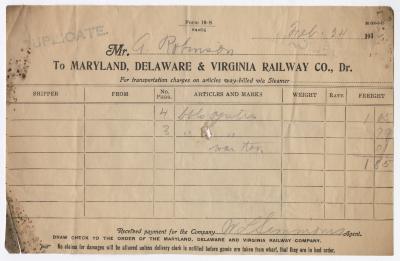 Form 19-S
DUPLICATE.
Feb. 24 191
Mr. A. Robinson
To MARYLAND, DELAWARE & VIRGINIA RAILWAY CO., Dr.
For transportation charges on articles way-billed via Steamer
SHIPPER FROM No. PKGS. ARTICLES AND MARKS WEIGHT RATE FREIGHT
4 bbls oysters 1
3 " "
war tax 01
1 85
Received payment for the Company Agent.
DRAW CHECK TO THE ORDER OF THE MARYLAND, DELAWARE AND VIRGINIA RAILWAY COMPANY.
No claims for damages will be allowed unless delivery clerk is notified before goods are taken from wharf, that they are in bad order.